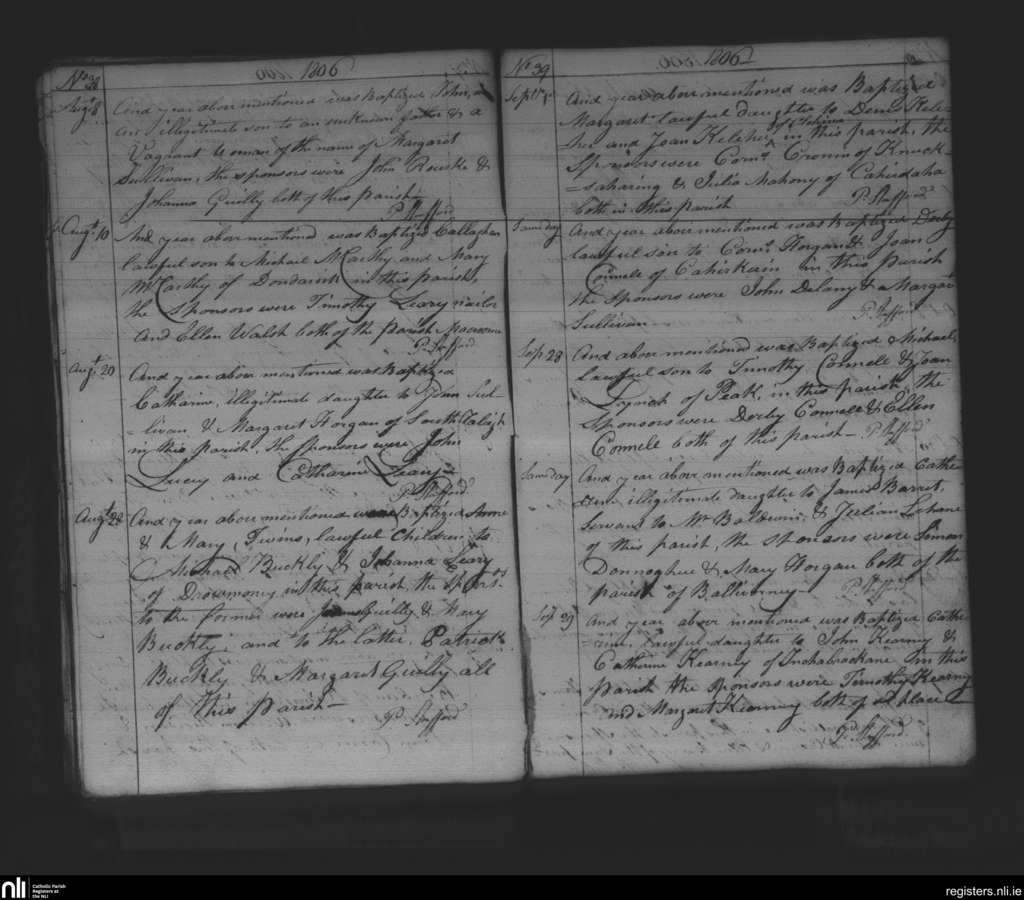 No. 38
1806
Augt. 8
And year above mentioned was Baptized John,
an illegitimate son to an unknown father & a
Vagrant Woman of the name of Margaret
Sullivan, the sponsors were John Rourke &
Johanna Guilly both of this parish
P. Stafford
Augt. 10
And year above mentioned was Baptized Callaghan
lawful son to Michael McCarthy and Mary
McCarthy of Dondarirk in this parish,
the Sponsors were Timothy Leary
And Ellen Walsh both of the parish Macroom
P. Stafford
Augt. 20
And year above mentioned was Baptized
Catharine, illegitimate daughter to John Sul
=livan & Margaret Horgan of South
in this parish, the sponsors were John
Lucey and Catharine Leary
P. Stafford
Augt. 28
And year above mentioned were Baptized Anne
& Mary, Twins, lawful Children to
Michael Buckly & Johanna Leary
of Drowmoney in this parish, the Sponsrs.
to the former were Guilly & Mary
Buckly, and to the latter, Patrick
Buckly & Margaret Guilly all
of this parish
P. Stafford
No. 39
1806
Septr. 1
And year above mentioned was Baptized
Margaret lawful daughter to Denis Kele=
her and Joan Keleher of in this parish, the
Sponsors were Corns. Cronin of Knock
=saharing & Julia Mahony of Cahirdaha
both in this parish P. Stafford
Same day
And year above mentioned was Baptized Derby
lawful son to Corns. Horgan & Joan
Connell of Cahirkain in this parish
the Sponsors were John Delany & Margart
Sullivan P. Stafford
Sep. 28
And above mentioned was Baptized Michael,
lawful son to Timothy Connell & Joan
Lynch of Peak, in this parish, the
Sponsors were Derby Connell & Ellen
Connell both of this parish P. Stafford
Same day
And year above mentioned was Baptized Cathe
=rine, illegitimate daughter to James Barret,
Servant to Mr. Baldwin, & Julian Lehane
of this parish, the Sponsors were Simon
Donnoghue & Mary Horgan both of the
parish of Ballinney P. Stafford
Sep. 29
And year above mentioned was Baptized Cathe
=rine, lawful daughter to John Kearny &
Catherine Kearney of Inchabrackane in this
parish the sponsors were Timothy Kearny
and Margaret Kearney both of sd. place
P. Stafford
nli
Catholic Parish
Registers at
the NLI
registers.nli.ie